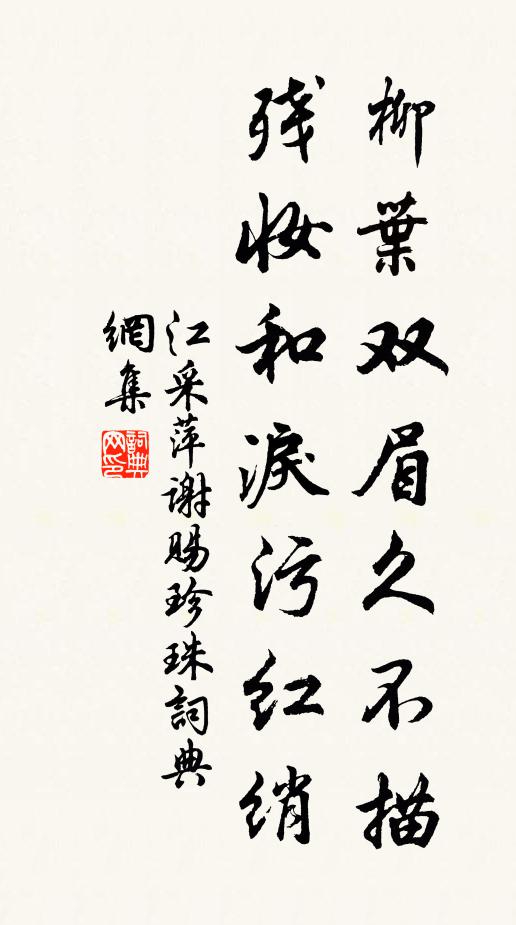 柳葉双眉久不描
残妆和淚污红绡
江采萍谢赐珍珠詞典
網集
詞典网印